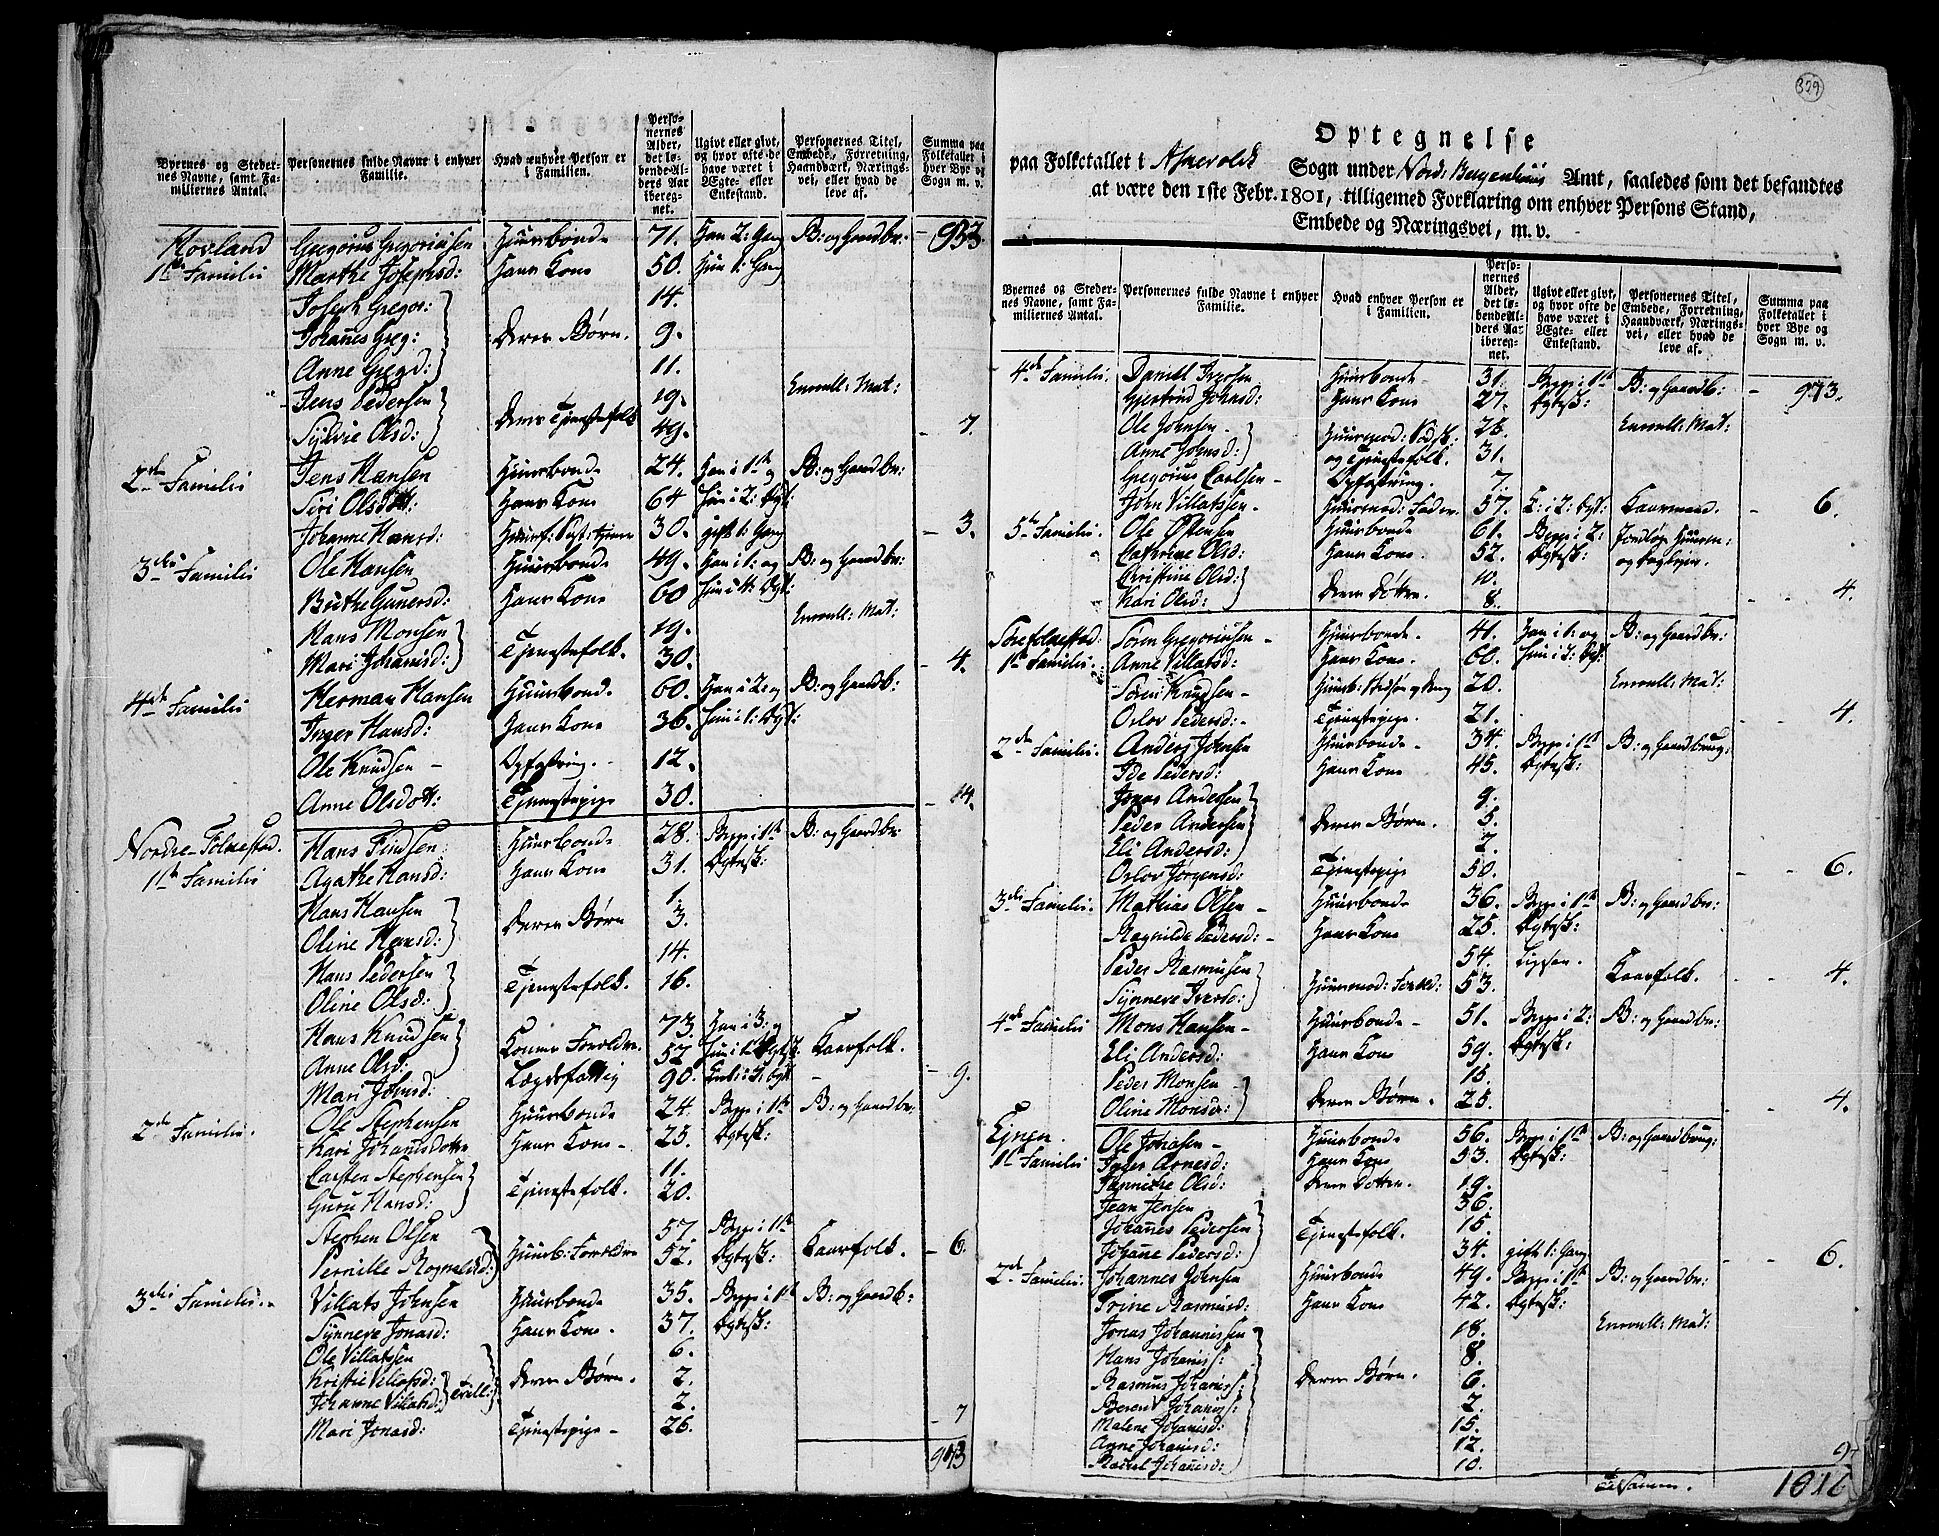 Byernes og Steder-
nes Navne, samt Fa-
miliernes Antal.
Personernes fulde Navne i enhver
Familie.
Hvad enhver Person er
i Familien.
Perso-
nernes
Alder,
det lø-
bende Al-
ders Aar
iberegnet.
Ugivt eller givt,
og hvor ofte de
have været i
Ægte- eller
Enkestand.
Personernes Titel,
Embede, Forretning,
Haandværk, Nærings-
vei, eller hvad de
leve af.
Summa paa
Folketallet i
hver By og
Sogn m. v.
Hovland Gregorius Gregoriussen Huusbonde 71. Han 2: Gang B: og Gaardbr: 933
1ste Familie Marthe Josephsd: Hans Kone 50. Hun 1: Gang
Joseph Gregor: 14.
Johañes Greg: Deres Børn. 9.
Anne Gregd: 11.
Jens Pedersen 19. Enroll: Mat:
Sylvie Olsd: Deres Tjenestefolk 49. 7.
2den Familie Jens Hansen Huusbonde 24. Han i 1ste og B: og Gaardbr:
Siri Olsdatt: Hans Kone 64 Hun i 2: Ægt:
Johanne Hansd: 30. gift 1: Gang 3.
3die Familie Ole Hansen Huusbonde 49. Han i 1: og B: og Gaardbr:
Birthe Gunersd: Hans Kone 60 Hun i 4: Ægt:
Hans Monsen 19. Enroll: Mat:
Mari Johanisd: Tjenestefolk. 30. 4.
4de Familie Herman Hansen Huusbonde 60. Han i 2: og B: og Gaardb:
Inger Hansd: Hans Kone 36. Hun i 1: Ægt:
Ole Knudsen - Opfostring. 12.
Anne Olsdatt: Tjenestepige 30. 4.
Nordre-Folkestad. Hans Findsen Huusbonde 28. Begge i 1ste B: og Gaardbr:
1ste Familie Agathe Hansd: Hans Kone 31. Ægtesk:
Hans Hansen 1.
Oline Hansd: Deres Børn 3.
Hans Pedersen 14.
Oline Olsd: Tjenestefolk. 16.
Hans Knudsen 73 Han i 3: og
Anne Olsd: Konens Forældre 57 Hun i 1ste Ægtsk. Kaarfolk.
Mari Johnsd: Lægdsfattig 90. 9.
2den Familie. Ole Stephensen Huusbonde 24. Begge i 1ste B: og Gaardbr:
Kari Johanisdotter Hans Kone - 25. Ægtesk:
Carsten Stephensen 11.
Guru Hansd: Tjenestefolk. 20.
Stephen Olsen 57. Begge i 1ste
Pernille Rognaldsd: Huusb: Forældre 52. Ægtesk: Kaarfolk. 6.
3die Familie. Villats Johnsen Huusbonde 35. Begge i 1ste B: og Gaardb:
Synneve Jonasd: Hans Kone. 37. Ægtesk:
Ole Villatsen 6.
Kristie Villatsd: Deres Børn. 2.
Johanne Villatsd: Tvill: 2.
Mari Jonasd: Tjenestepige - 26. 7
973
329
Optegnelse
paa Folketallet i Askevolds Sogn under Nord: Bergenhuus Amt, saaledes som det befandtes
at være den 1ste Febr. 1801, tilligemed Forklaring om enhver Persons Stand,
Embede og Næringsvei, m. v.
Byernes og Steder-
nes Navne, samt Fa-
miliernes Antal.
Personernes fulde Navne i enhver
Familie.
Hvad enhver Person er
i Familien.
Perso-
nernes
Alder,
det lø-
bende Al-
ders Aar
iberegnet.
Ugivt eller givt,
og hvor ofte de
have været i
Ægte- eller
Enkestand.
Personernes Titel,
Embede, Forretning,
Haandværk, Nærings-
vei, eller hvad de
leve af.
Summa paa
Folketallet i
hver By og
Sogn m. v.
4de Familie. Daniel Iversen Huusbonde 31. Begge i 1ste B: og Gaardb: 973.
Gjertrud Johnsd: Hans Kone 27. Ægtesk:
Ole Johnsen 28. Enroll: Mat:
Anne Johnsd: og Tjenestefolk. 31.
Gregorius Carlsen - Opfostring. 7.
John Villatssen - Huusmod: Fader 57. E: i 2: Ægt: Kaarmand 6.
5te Familie. Ole Ostensen Huusbonde 61. Begge i 2: Jordløs Huusm:
Cathrine Olsd: Hans Kone 52. Ægtesk:
Christine Olsd: 10.
Kari Olsd: Deres Døttre. 8. 4.
Søre Folkestad. Søren Gregoriussen - Huusbonde. 41. Han i 1: og B: og Gaardbr:
1ste Familie. Anne Villatsd: Hans Kone. 60. Hun i 2: Ægt:
Søren Knudsen - 20. Enroll: Mat:
Orlov Pedersd: Tjenestepige. 21. 4.
2den Familie. Anders Johnsen Huusbonde - 34. Begge i 1ste B: og Gaardbrug:
Ide Pedersd: Hans Kone 45. Ægtesk:
Jonas Andersen 9.
Peder Andersen Deres Børn. 5.
Eli Andersd: 2.
Orlov Jørgensd: Tjenestepige 50. 6.
3die Familie. Mathias Olsen - Huusbonde 36. Begge i 1ste B: og Gaardbr:
Ragnilde Pedersd: - Hans Kone 25. Ægtesk:
Peder Rasmusen 54. Ligesaa. Kaarfolk.
Synneve Iversd: Huusmod: Foreld: 53. 4.
4de Familie Mons Hansen - Huusbonde - 51. Begge i 2: B: og Gaardbr:
Eli Andersd: Hans Kone 59. Ægtesk:
Peder Monsen 15.
Oline Monsd: Deres Børn. 25. 4.
Ejnen. Ole Johasen - Huusbonde 56. Begge i 1ste B: og Gaardbrug:
1ste Familie Inger Arnesd: Hans Kone 53. Ægtesk:
Synneve Olsd: Deres Dotter. 19.
Jean Jensen 36.
Johañes Pedersen Tjenestefolk. 15.
Johañe Pedersd: 34. gift 1: Gang 6.
2den Familie. Johannes Johnsen Huusbonde 49. Begge i 1ste B: og Gaardbr:
Trine Rasmusd: Hans Kone 42. Ægtesk:
Jonas Johanissen 18. Enroll: Mat:
Hans Johaniss: 8.
Rasmus Johaniss: Deres Børn. 6.
Berent Johaniss: 2.
Malene Johanisd: 15.
Anne Johanisd: 12.
Rachel Johanisd: 10. 9.
Tilsamm. 1016